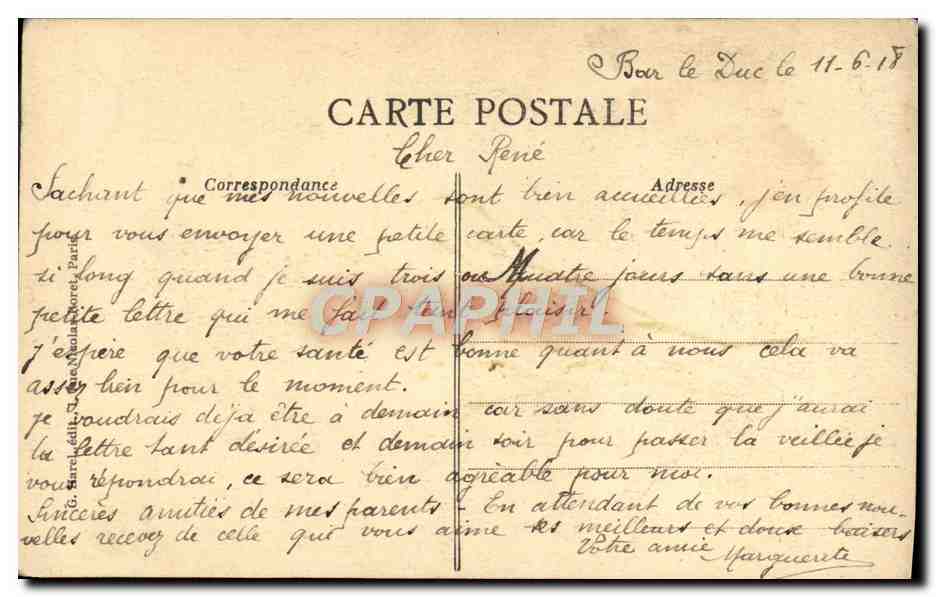 Bar le Duc le 11-6-18
CARTE POSTALE
Cher René
Correspondance
Adresse
Sachant que mes nouvelles sont bien accueillies, j'en profite
pour vous envoyer une petite carte, car le temps me semble
si long quand je suis trois ou quatre jours sans une bonne
petite lettre qui me fait tant plaisir.
J'espère que votre santé est bonne quant à nous cela va
assez bien pour le moment.
Je voudrais déja être à demain car sans doute que j'aurai
la lettre tant désirée et demain soir pour passer la veillée je
vous répondrai, ce sera bien agréable pour moi.
Sincères amitiés de mes parents - En attendant de vos bonnes nou-
velles recevez de celle qui vous aime ses meilleurs et doux baisers
Votre amie
Marguerite
G. Harel, édit., Paris
CPAPHIL